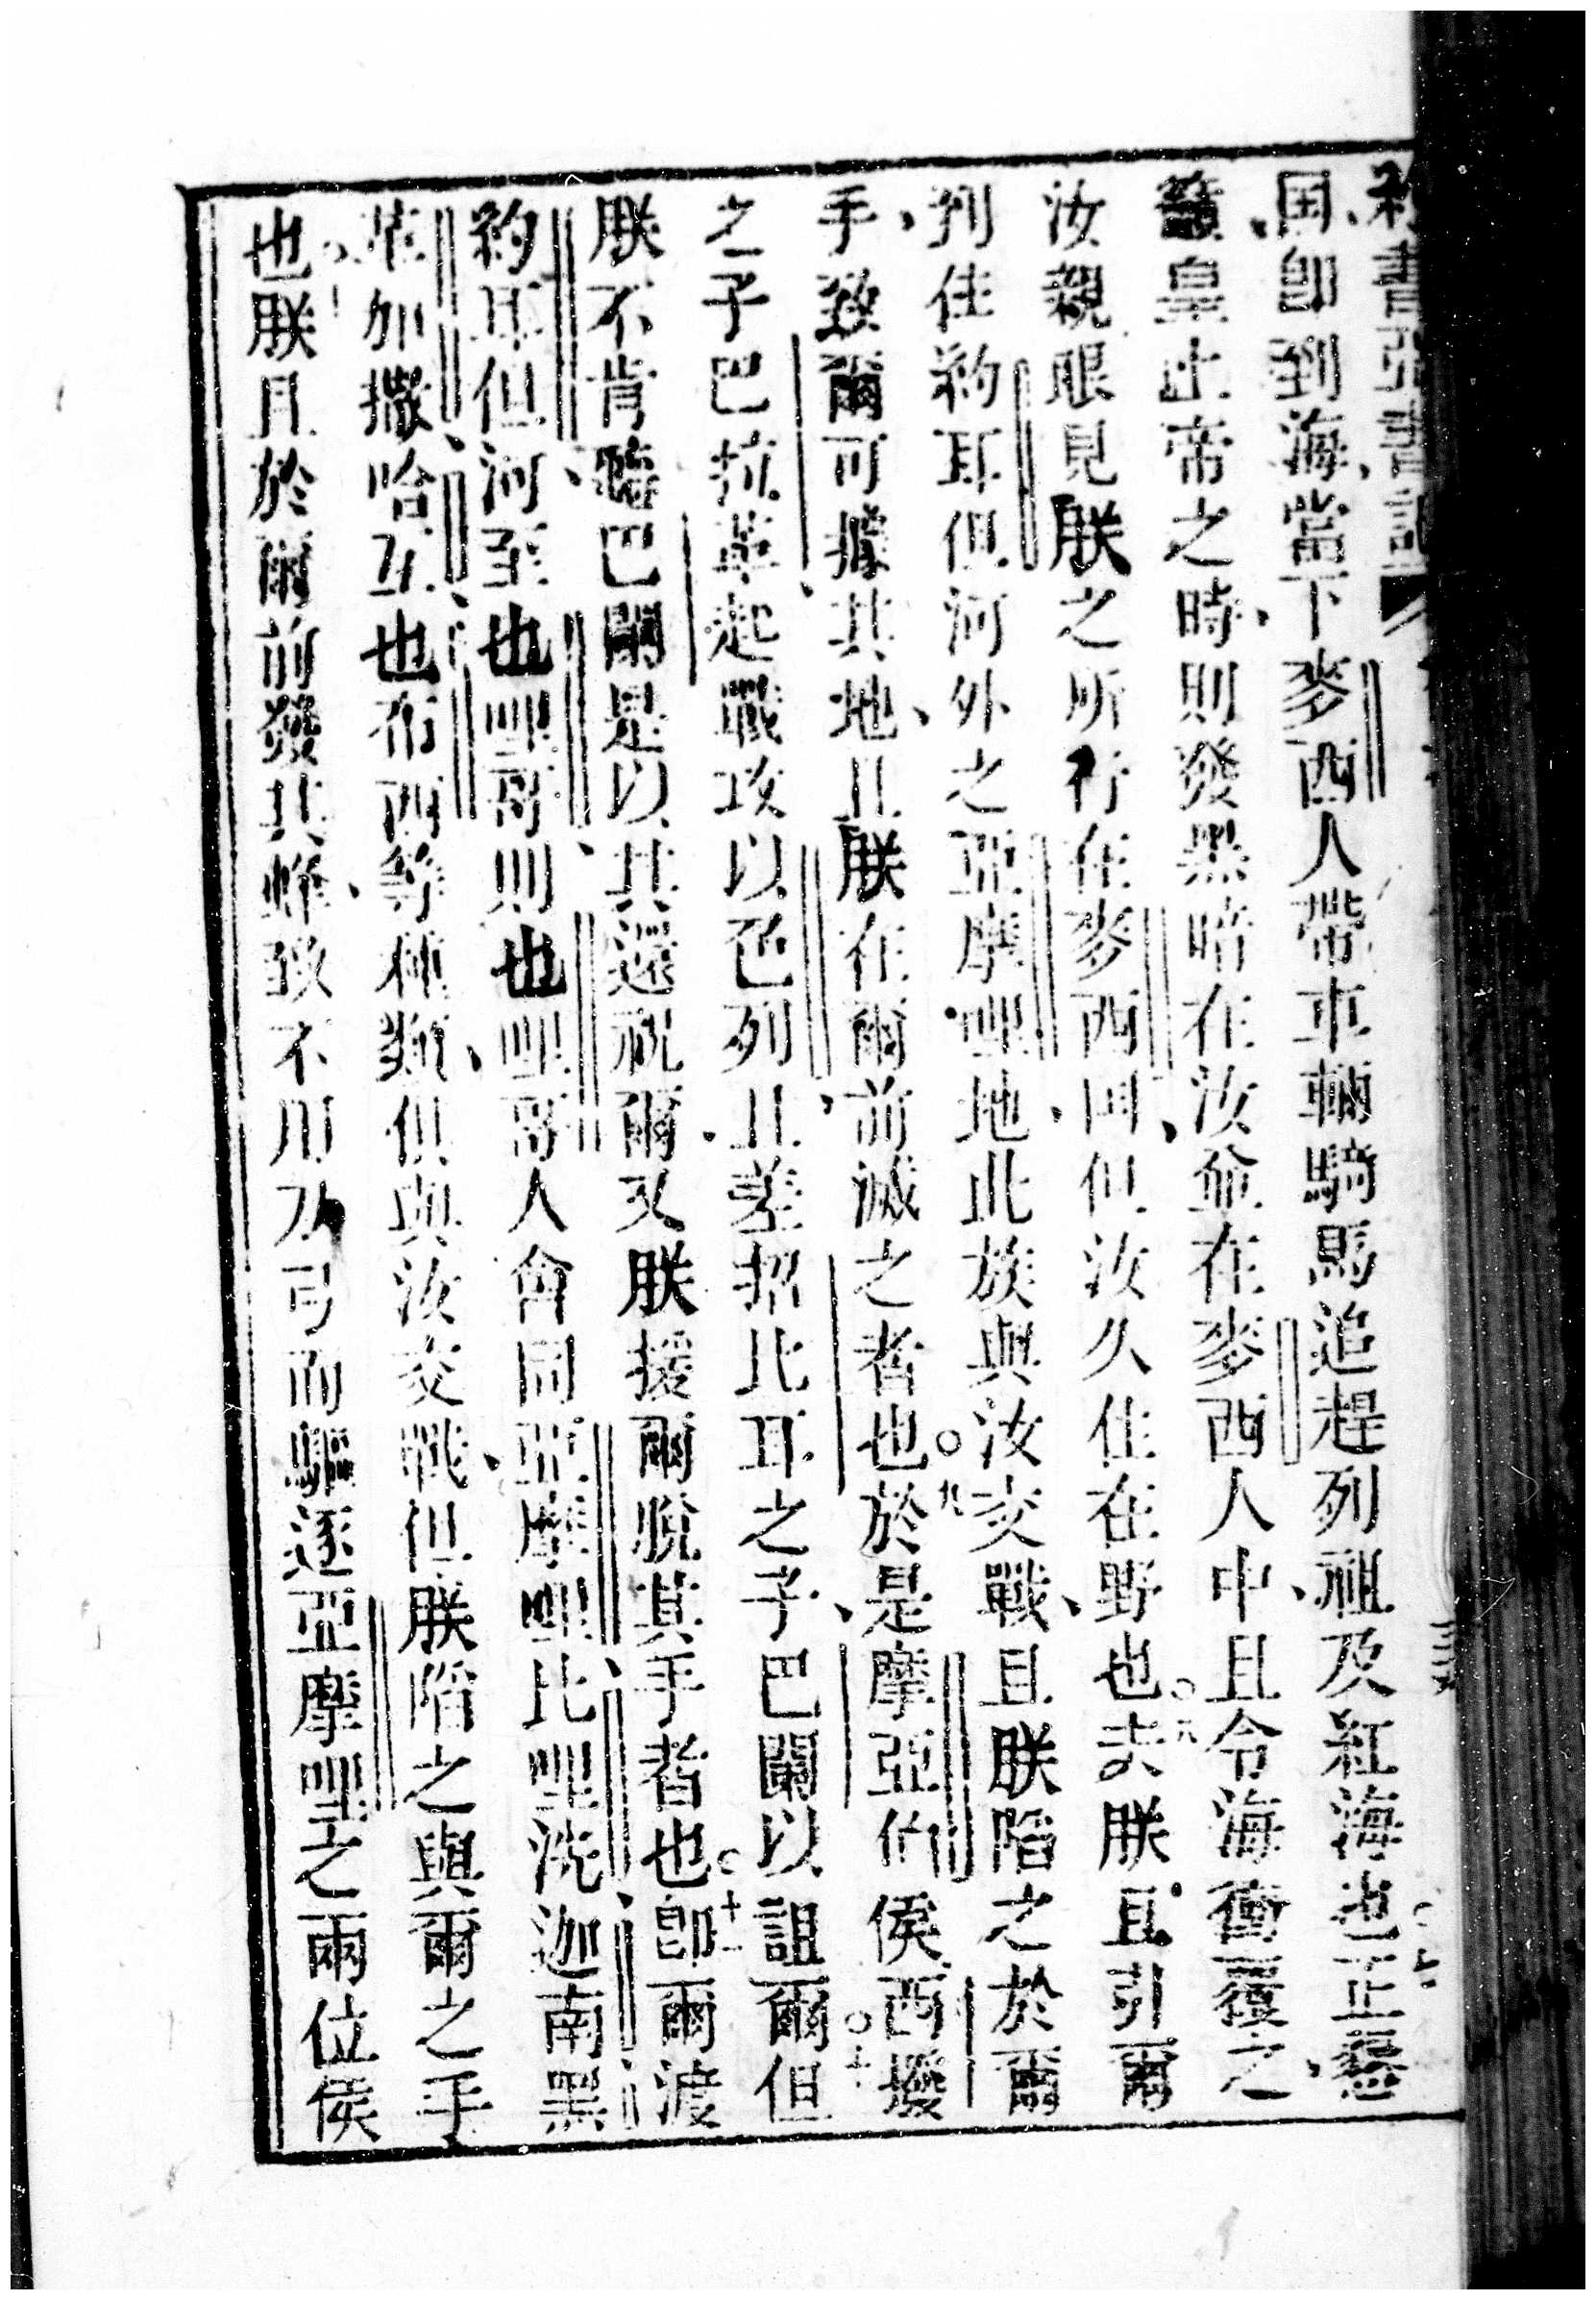 国、卽到海、當下麥西人帶車輛騎馬追趕列祖及紅海也○七正懇
籲、皇上帝之時、則發黑暗在汝爺在麥西人中、且令海衝覆之、
汝親眼見朕之所行在麥西囯、但汝久住在野也○八夫朕且引爾
列、住約耳但河外之亞摩哩地、此族與汝交戰、且朕陷之於爾
手、致爾可據其地、且朕在爾前滅之者也○九於是摩亞伯侯西撥
之子巴拉、革起戰攻以色列、且差招比耳之子、巴闌以詛爾○十但
朕不肯聽巴闌、是以其還祝爾、又朕援爾脫其手者也○十一卽爾渡
約耳但河、至也哩哥、則也哩哥人會同亞摩哩、比哩洗、迦南、黑
革、加撒、哈互、也布西等種類、俱與汝交戰、但朕陷之與爾之手
也、朕且於爾前發其蜂、致不用刀弓而驅逐亞摩哩之兩位侯